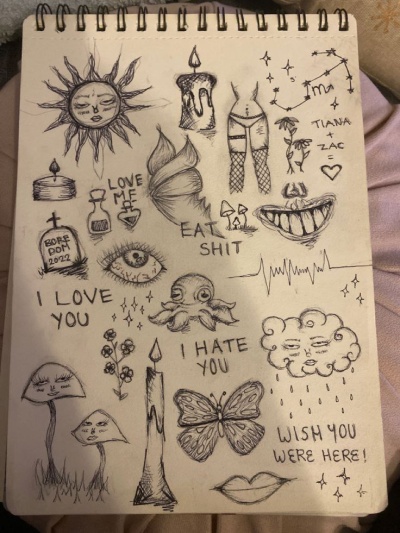 ♏
TIANA
+
ZAC
=
♡
LOVE
ME
BORE
DOM
2022
EAT
SHIT
I LOVE
YOU
I HATE
YOU
WISH YOU
WERE HERE!